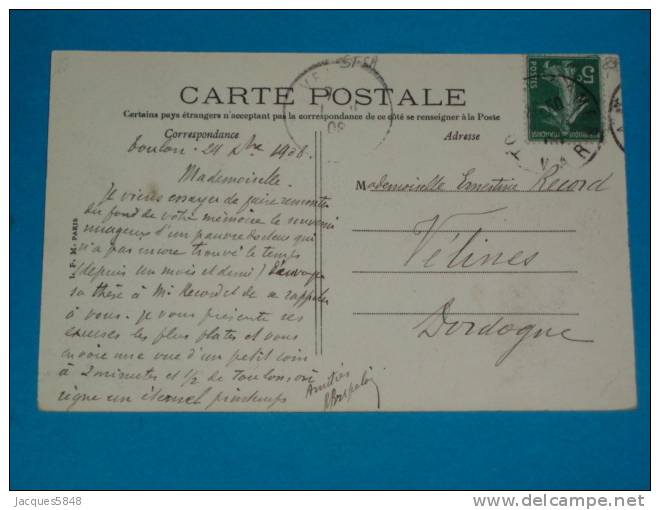 CARTE POSTALE
Certains pays étrangers n'acceptant pas la correspondance de ce côté se renseigner à la Poste
Correspondance
Adresse
Toulon. 21 Xbre 1908.
Mademoiselle.
Je viens essayer de faire remonter
du fond de votre mémoire le souvenir
nuageux d'un pauvre docteur qui
n'a pas encore trouvé le temps
(depuis un mois et demi) d'envoyer
sa thèse à Mr Record et de se rappeler
à vous. je vous présente ses
excuses les plus plates et vous
envoie une vue d'un petit coin
à 2 minutes et 1/2 de Toulon, où
règne un éternel printemps
Amitiés
Mademoiselle Ernestine Record
Vélines
Dordogne
L. F. M. PARIS
5c
POSTES
Jacques5848
www.delcampe.net